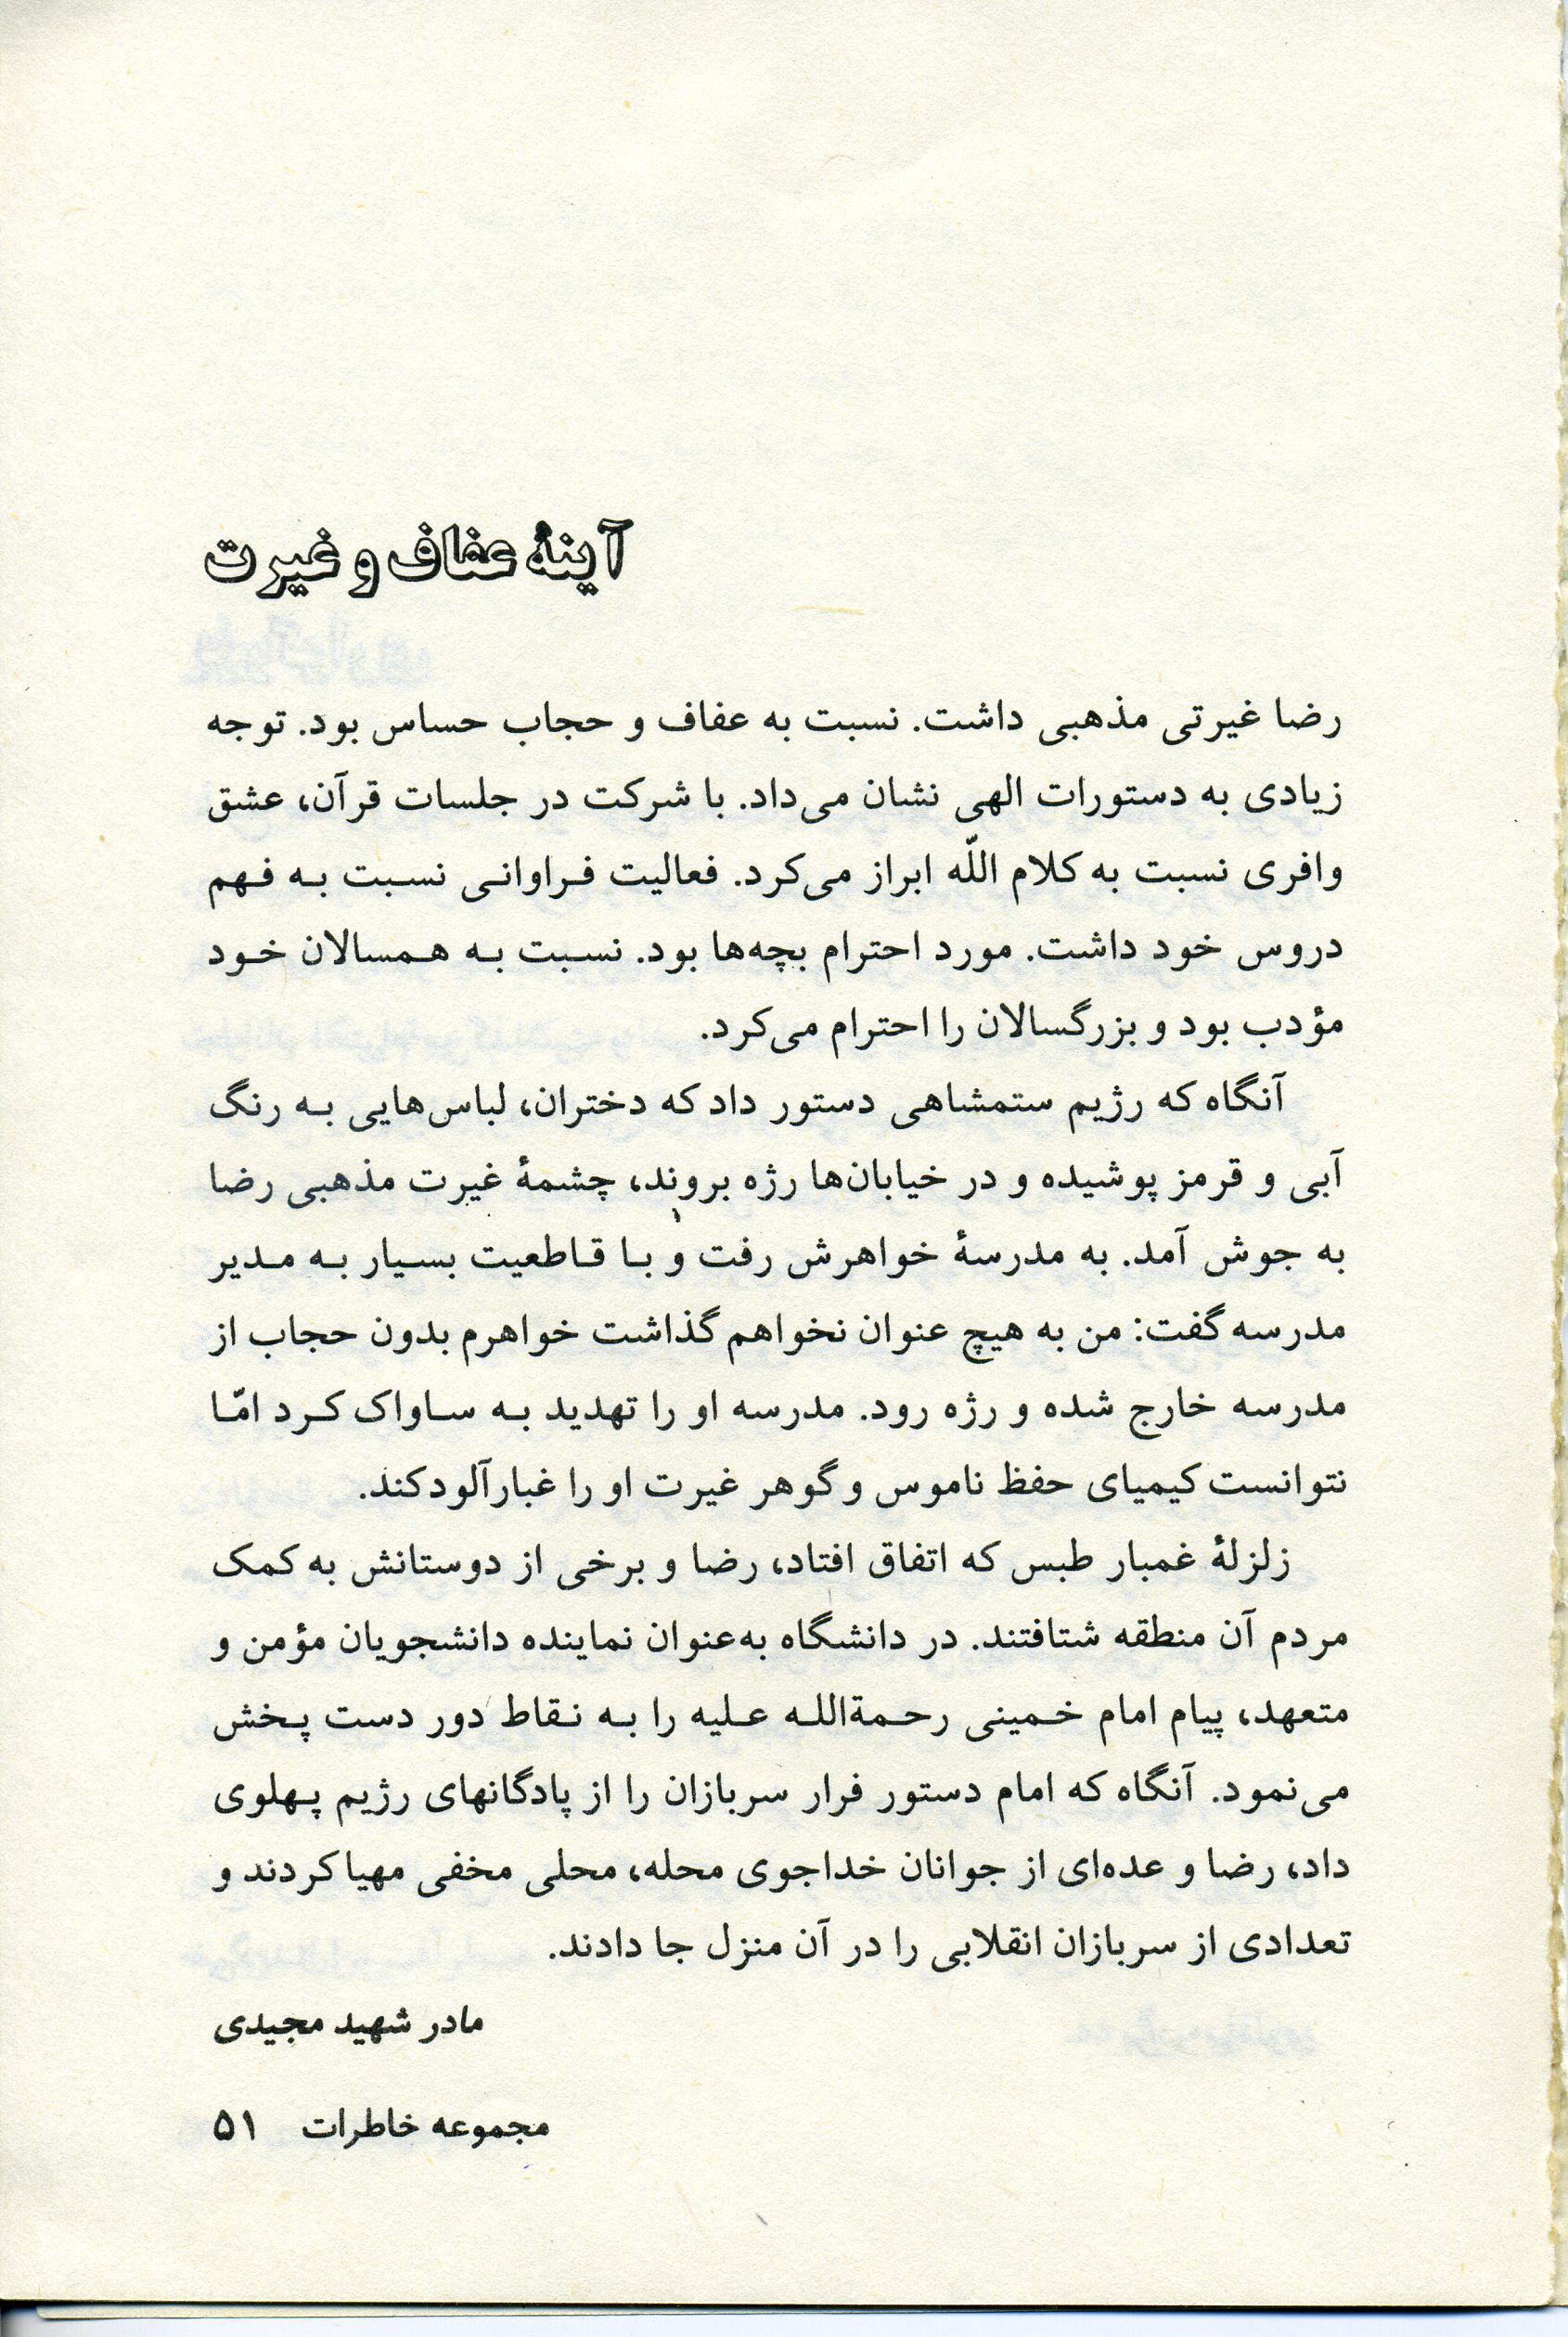 آینهٔ عفاف و غیرت
رضا غیرتی مذهبی داشت. نسبت به عفاف و حجاب حساس بود. توجه
زیادی به دستورات الهی نشان می‌داد. با شرکت در جلسات قرآن، عشق
وافری نسبت به کلام اللّه ابراز می‌کرد. فعالیت فراوانی نسبت به فهم
دروس خود داشت. مورد احترام بچه‌ها بود. نسبت به همسالان خود
مؤدب بود و بزرگسالان را احترام می‌کرد.
آنگاه که رژیم ستمشاهی دستور داد که دختران، لباس‌هایی به رنگ
آبی و قرمز پوشیده و در خیابان‌ها رژه بروند، چشمهٔ غیرت مذهبی رضا
به جوش آمد. به مدرسهٔ خواهرش رفت و با قاطعیت بسیار به مدیر
مدرسه گفت: من به هیچ عنوان نخواهم گذاشت خواهرم بدون حجاب از
مدرسه خارج شده و رژه رود. مدرسه او را تهدید به ساواک کرد امّا
نتوانست کیمیای حفظ ناموس و گوهر غیرت او را غبارآلود کند.
زلزلهٔ غمبار طبس که اتفاق افتاد، رضا و برخی از دوستانش به کمک
مردم آن منطقه شتافتند. در دانشگاه به‌عنوان نماینده دانشجویان مؤمن و
متعهد، پیام امام خمینی رحمةالله علیه را به نقاط دور دست پخش
می‌نمود. آنگاه که امام دستور فرار سربازان را از پادگانهای رژیم پهلوی
داد، رضا و عده‌ای از جوانان خداجوی محله، محلی مخفی مهیا کردند و
تعدادی از سربازان انقلابی را در آن منزل جا دادند.
مادر شهید مجیدی
مجموعه خاطرات ۵۱